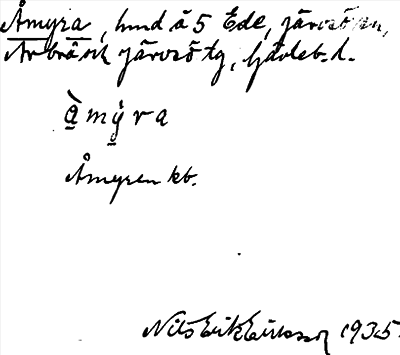 Åmyra, hmd å 5 Ede, Järvsö sn,
Arbrå och Järvsö tg, Gävleb. l.
å m y r a
Åmyren kb.
Nils Erik Eriksson 1935.